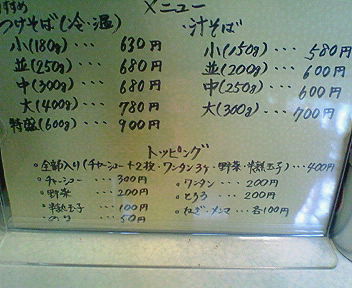 すすめ メニュー
つけそば(冷・温) ・汁そば
小(180g)・・・ 630円 小(150g)・・・ 580円
並(250g)・・・ 680円 並(200g)・・・ 600円
中(300g)・・・ 680円 中(250g)・・・ 600円
大(400g)・・・ 780円 大(300g)・・・ 700円
特盛(600g)・・・ 900円
トッピング
○全部入り(チャーシュー+2枚・ワンタン3ヶ・野菜・半熟玉子)・・・400円
○チャーシュー・・・300円 ○ワンタン・・・200円
○野菜・・・200円 ○とろろ・・・200円
○半熟玉子・・・100円 ○ねぎ・メンマ・・・各100円
○のり・・・50円